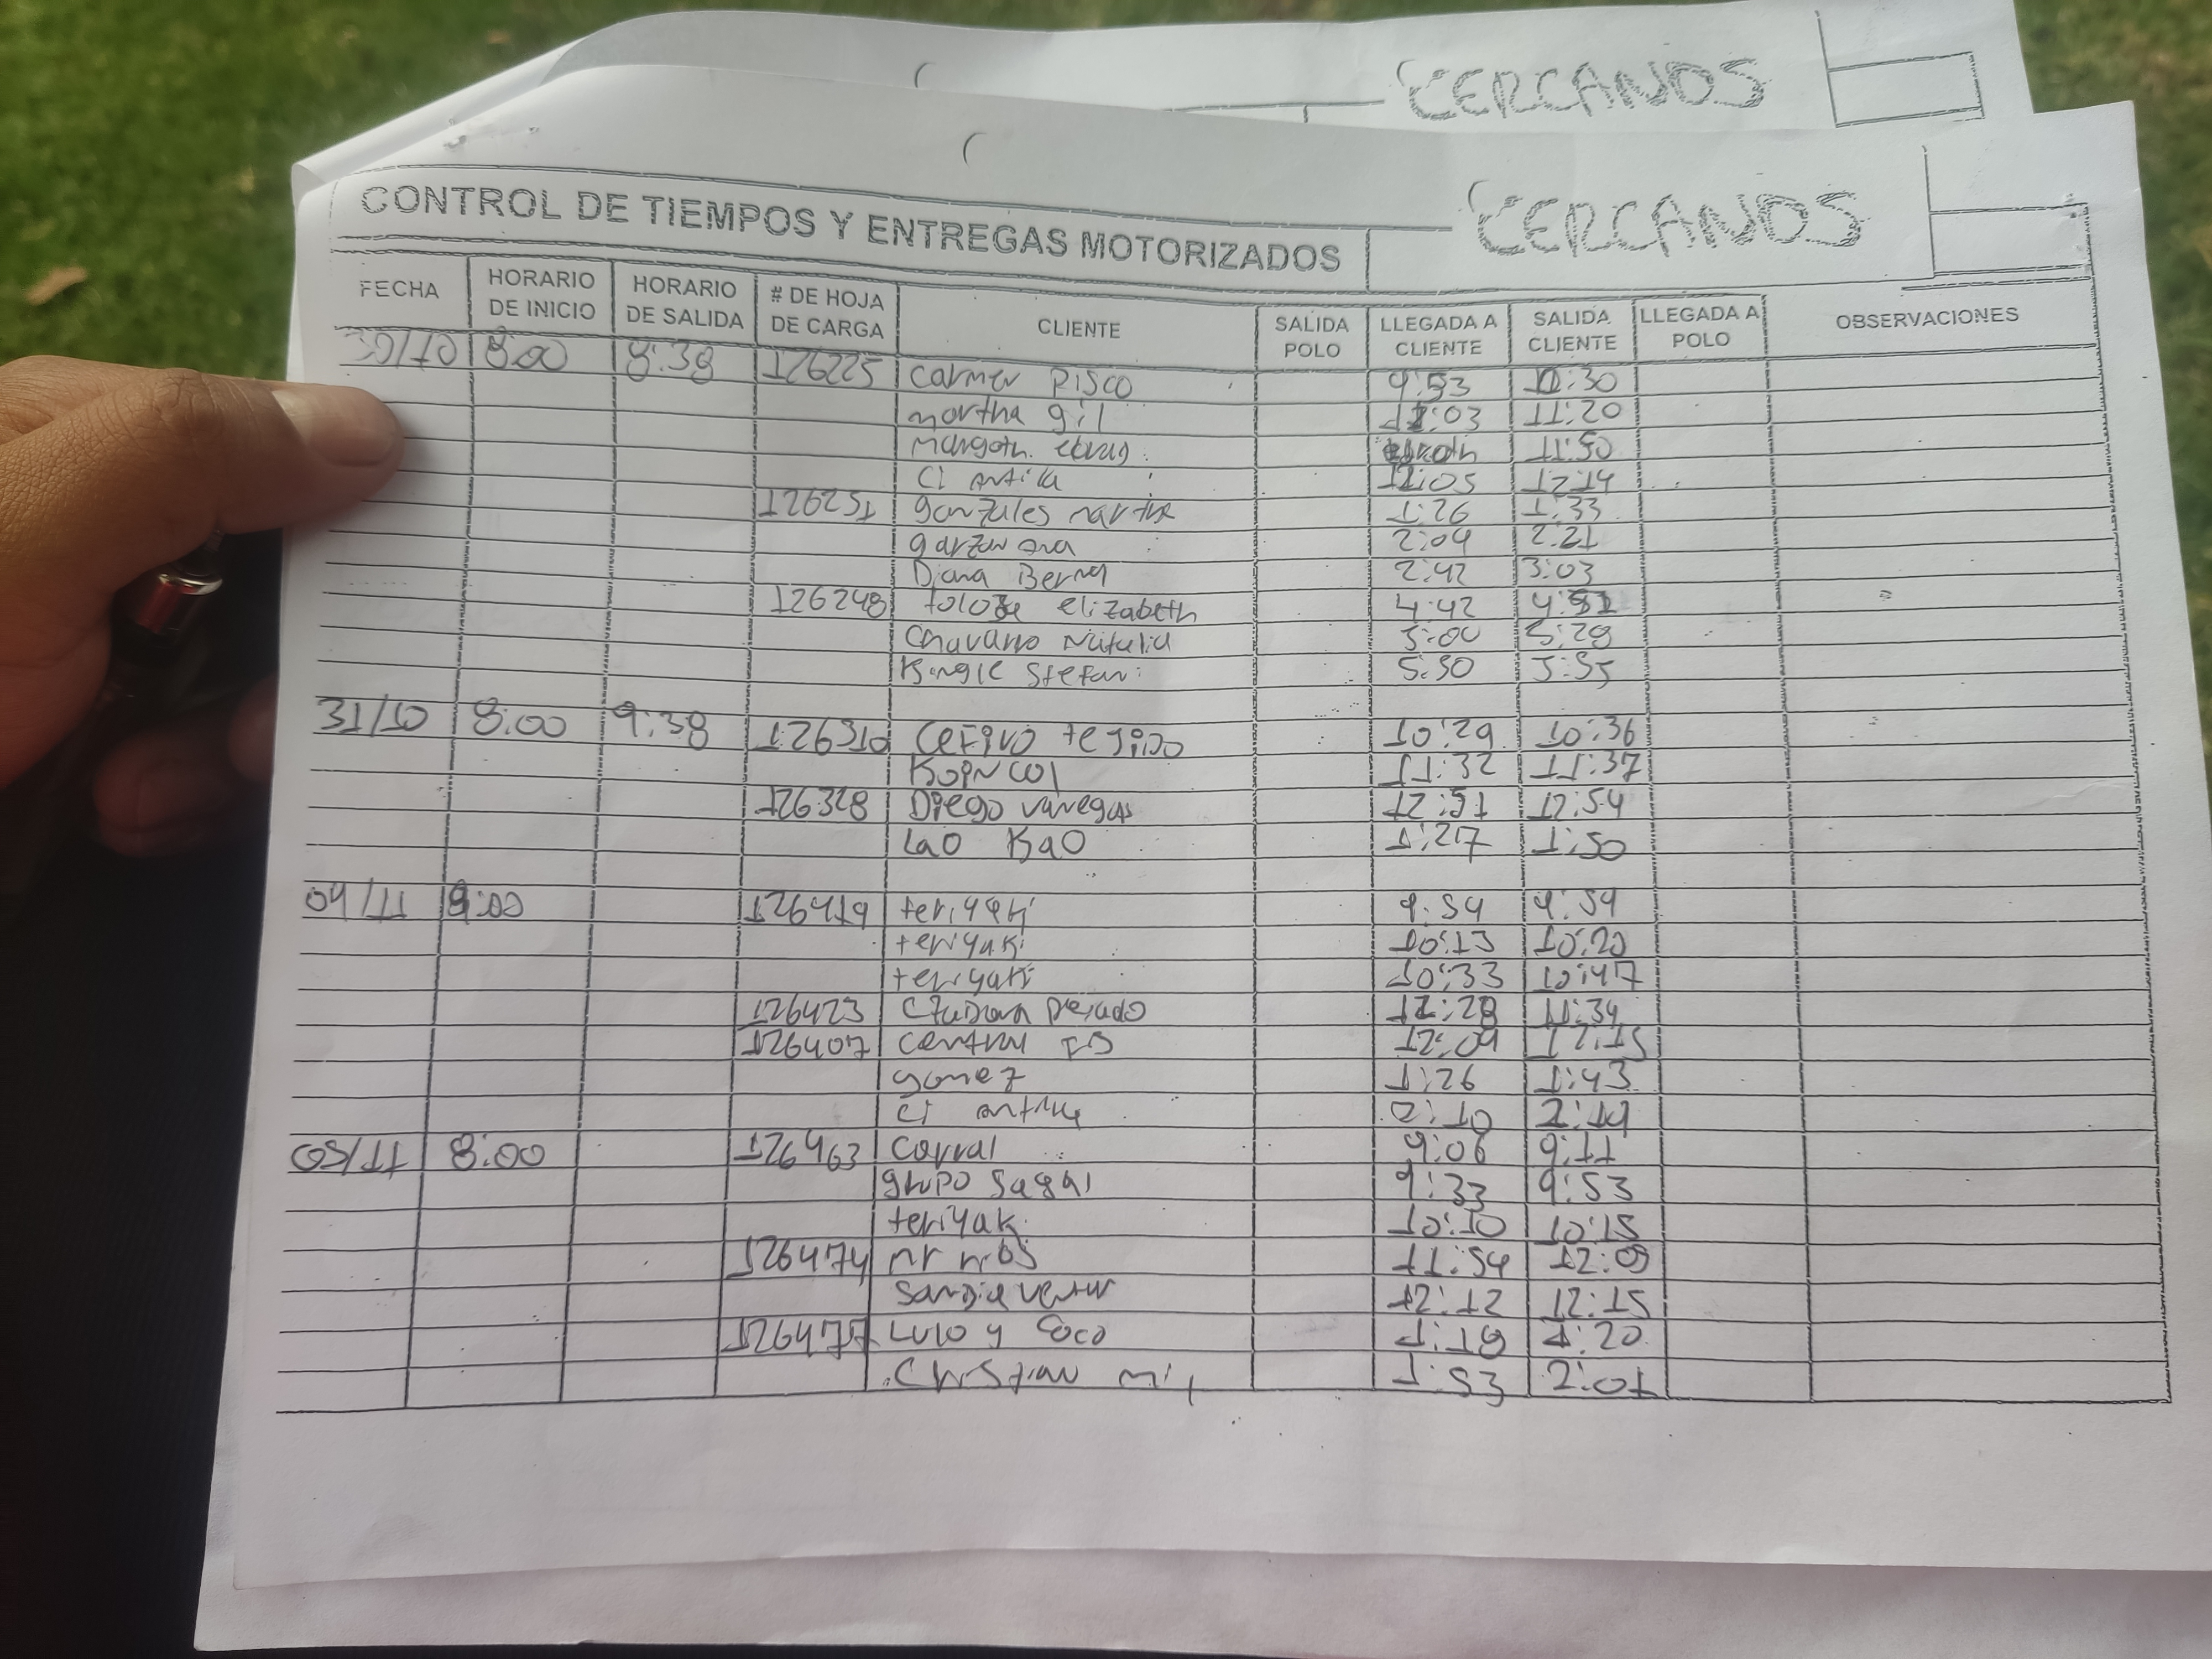 CERCANOS
CONTROL DE TIEMPOS Y ENTREGAS MOTORIZADOS CERCANOS
FECHA HORARIO DE INICIO HORARIO DE SALIDA # DE HOJA DE CARGA CLIENTE SALIDA POLO LLEGADA A CLIENTE SALIDA CLIENTE LLEGADA A POLO OBSERVACIONES
30/10 8:00 8:38 126225 Carmen Pisco 9:53 10:30
martha gil 11:03 11:20
Margoth 11:50
CI 12:05 12:14
126251 gonzales martha 1:26 1:33
garzon ana 2:04 2:21
Diana Bernal 2:42 3:03
126248 toloza elizabeth 4:42
Chavarro Natalia 5:00 5:28
Stefani 5:30 5:35
31/10 8:00 9:38 126310 Cefiro tejido 10:29 10:36
KOPNCOL 11:32 11:37
126328 Diego vanegas 12:51 12:54
Lao Kao 1:27 1:50
04/11 8:00 126419 teriyaki 9:54 9:59
teriyaki 10:13 10:20
teriyaki 10:33 10:47
126423 11:34
126407 central 12:09 12:15
gomez 1:26 1:43
CI 2:10 2:19
05/11 8:00 126463 Corral 9:06 9:11
grupo 9:33 9:53
teriyaki 10:10 10:15
126474 mr 11:54 12:09
12:12 12:15
126477 Lulo y Coco 1:18 1:20
Christian 1:53 2:01